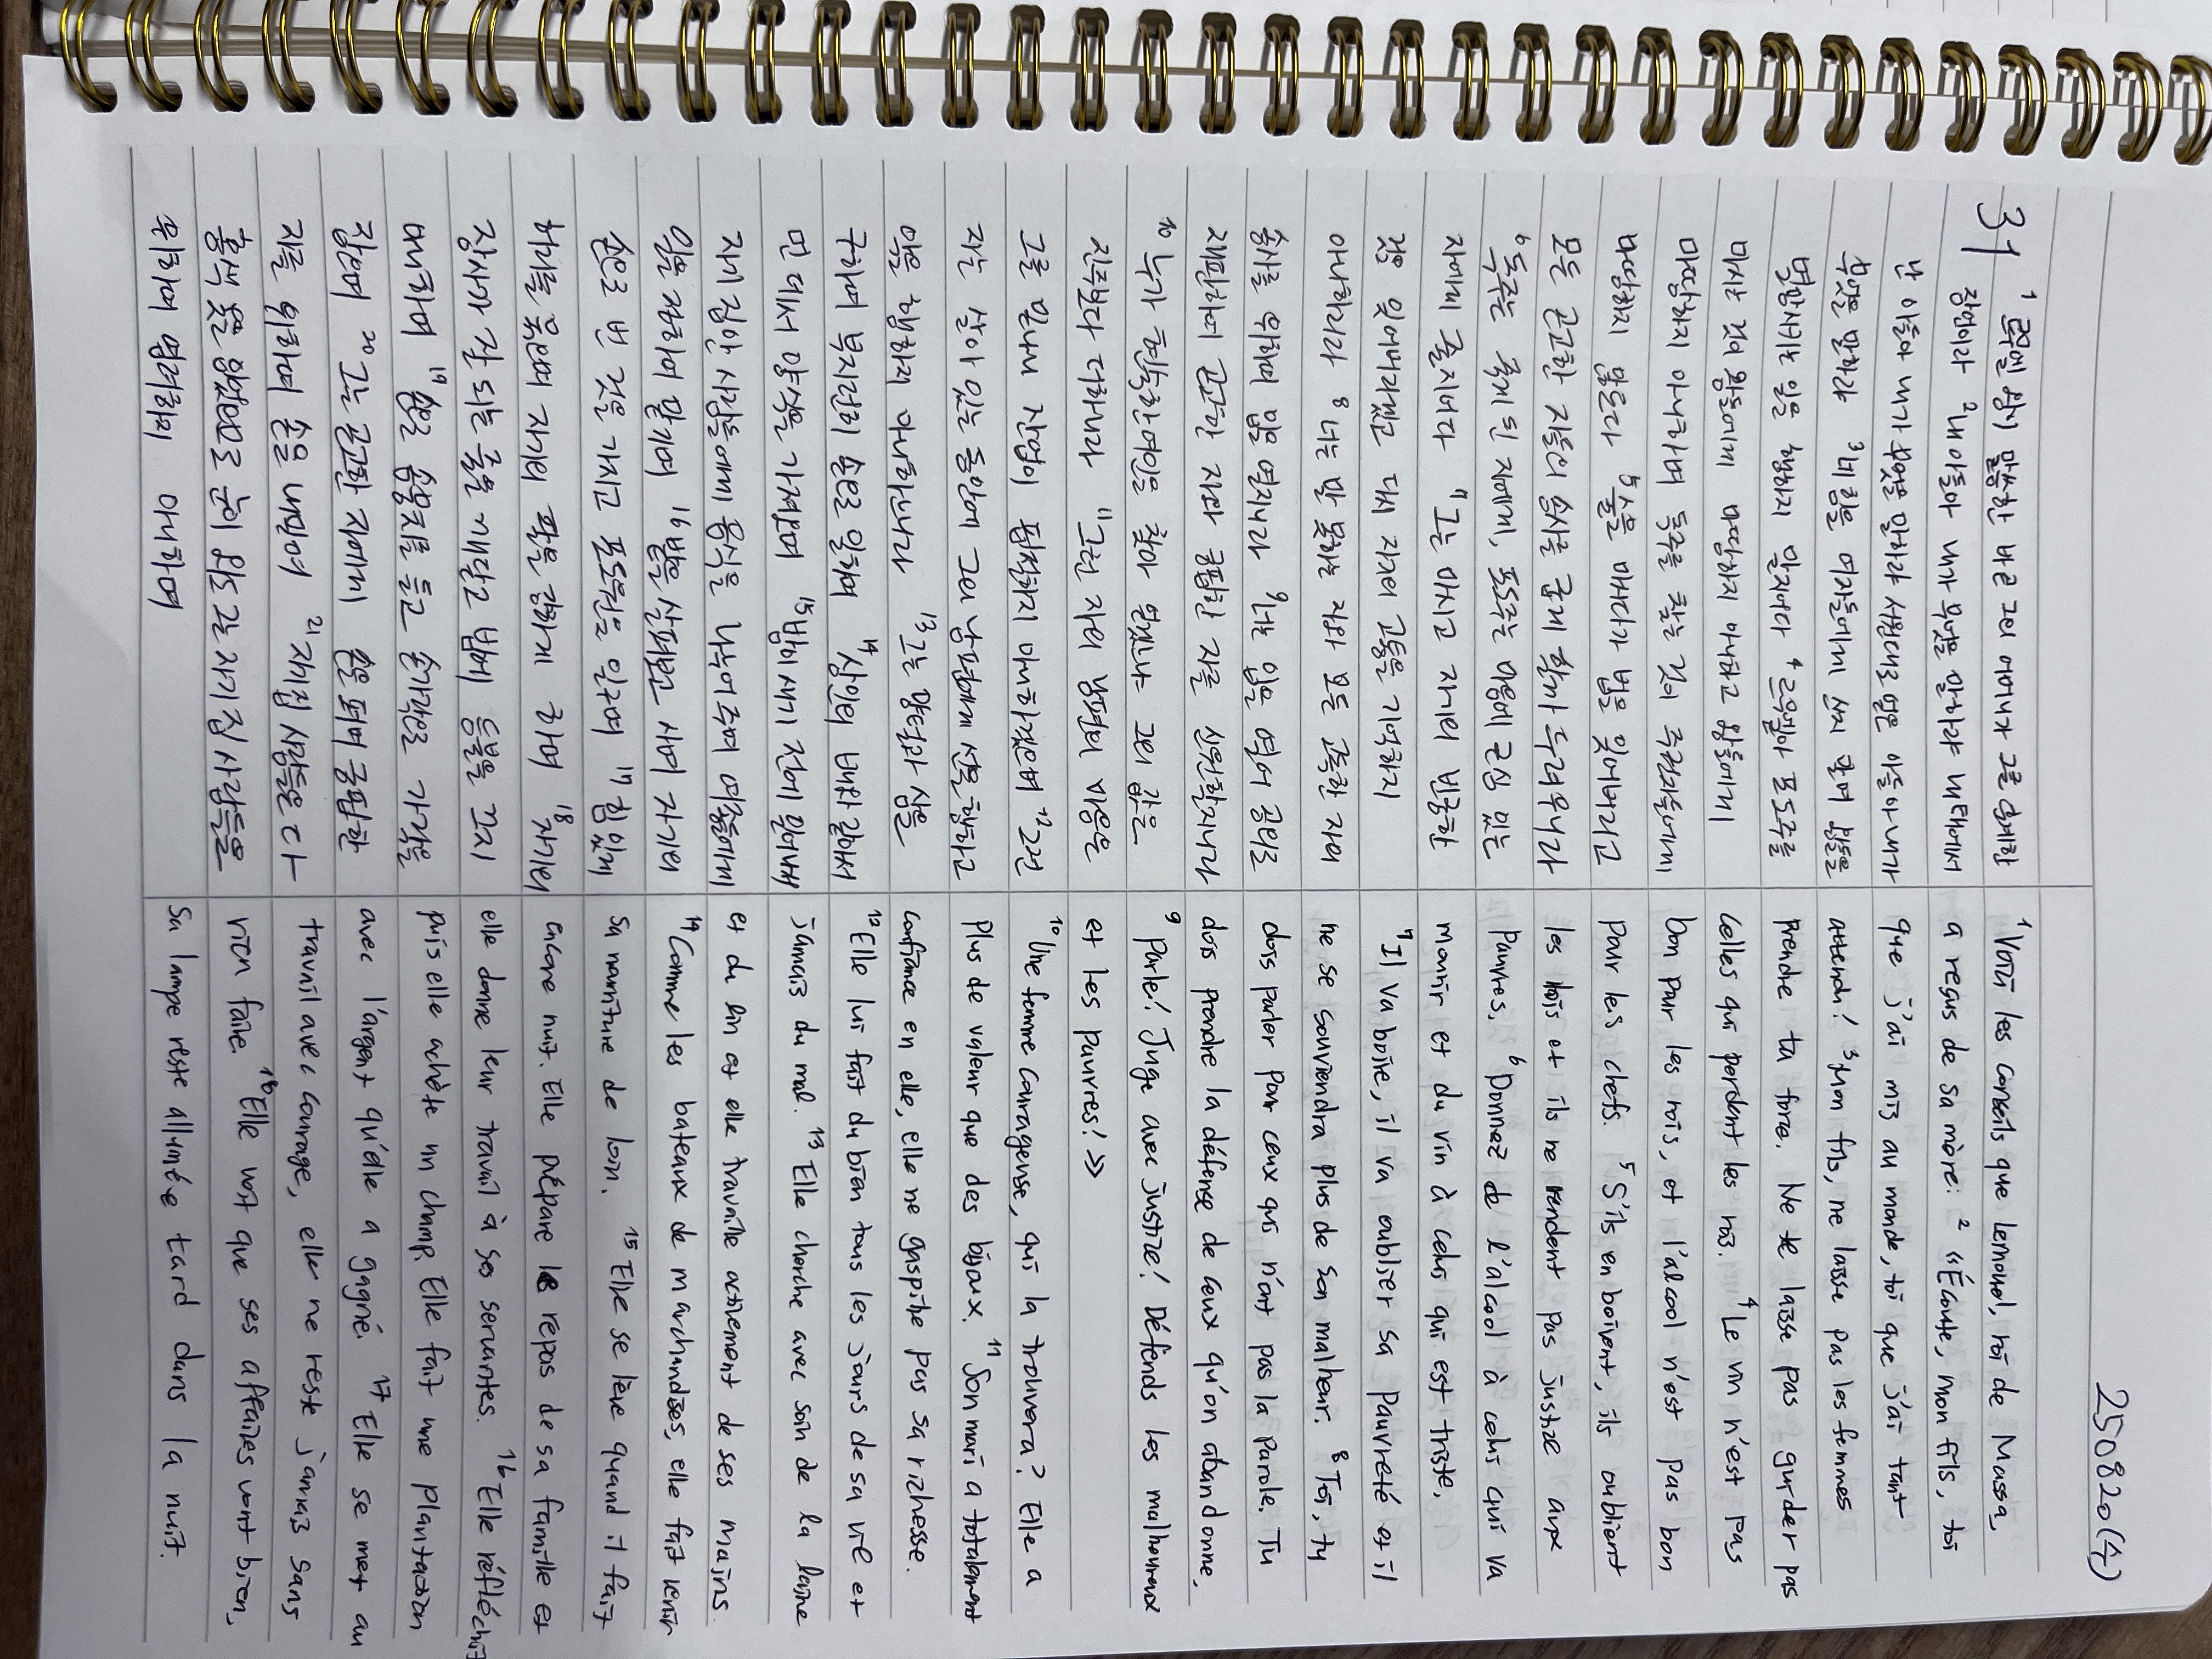 250820(수)
31 ¹르무엘 왕이 말씀한 바 곧 그의 어머니가 그를 훈계한
잠언이라 ²내 아들아 내가 무엇을 말하랴 내 태에서
난 아들아 내가 무엇을 말하랴 서원대로 얻은 아들아 내가
무엇을 말하랴 ³네 힘을 여자들에게 쓰지 말며 왕들을
멸망시키는 일을 행하지 말지어다 ⁴르무엘아 포도주를
마시는 것이 왕들에게 마땅하지 아니하고 왕들에게
마땅하지 아니하며 독주를 찾는 것이 주권자들에게
마땅하지 않도다 ⁵술을 마시다가 법을 잊어버리고
모든 곤고한 자들의 송사를 굽게 할까 두려우니라
⁶독주는 죽게 된 자에게, 포도주는 마음에 근심 있는
자에게 줄지어다 ⁷그는 마시고 자기의 빈궁한
것을 잊어버리겠고 다시 자기의 고통을 기억하지
아니하리라 ⁸너는 말 못하는 자와 모든 고독한 자의
송사를 위하여 입을 열지니라 ⁹너는 입을 열어 공의로
재판하여 곤고한 자와 궁핍한 자를 신원할지니라
¹⁰누가 현숙한 여인을 찾아 얻겠느냐 그의 값은
진주보다 더하니라 ¹¹그런 자의 남편의 마음은
그를 믿나니 산업이 핍절하지 아니하겠으며 ¹²그런
자는 살아 있는 동안에 그의 남편에게 선을 행하고
악을 행하지 아니하느니라 ¹³그는 양털과 삼을
구하여 부지런히 손으로 일하며 ¹⁴상인의 배와 같아서
먼 데서 양식을 가져오며 ¹⁵밤이 새기 전에 일어나서
자기 집안 사람들에게 음식을 나누어 주며 여종들에게
일을 정하여 맡기며 ¹⁶밭을 살펴 보고 사며 자기의
손으로 번 것을 가지고 포도원을 일구며 ¹⁷힘 있게
허리를 묶으며 자기의 팔을 강하게 하며 ¹⁸자기의
장사가 잘 되는 줄을 깨닫고 밤에 등불을 끄지
아니하며 ¹⁹손으로 솜뭉치를 들고 손가락으로 가락을
잡으며 ²⁰그는 곤고한 자에게 손을 펴며 궁핍한
자를 위하여 손을 내밀며 ²¹자기 집 사람들은 다
홍색 옷을 입었으므로 눈이 와도 그는 자기 집 사람들을
위하여 염려하지 아니하며
¹Voici les conseils que Lemouel, roi de Massa,
a reçus de sa mère: ² «Écoute, mon fils, toi
que j'ai mis au monde, toi que j'ai tant
attendu! ³Mon fils, ne laisse pas les femmes
prendre ta force. Ne te laisse pas guider pas
celles qui perdent les rois. ⁴Le vin n'est pas
bon pour les rois, et l'alcool n'est pas bon
pour les chefs. ⁵S'ils en boivent, ils oublient
les lois et ils ne rendent pas justice aux
pauvres. ⁶Donnez de l'alcool à celui qui va
mourir et du vin à celui qui est triste,
⁷Il va boire, il va oublier sa pauvreté et il
ne se souviendra plus de son malheur. ⁸Toi, tu
dois parler pour ceux qui n'ont pas la parole. Tu
dois prendre la défense de ceux qu'on abandonne,
⁹Parle! Juge avec justice! Défends les malheureux
et les pauvres!»
¹⁰Une femme courageuse, qui la trouvera? Elle a
plus de valeur que des bijoux. ¹¹Son mari a totalement
confiance en elle, elle ne gaspille pas sa richesse.
¹²Elle lui fait du bien tous les jours de sa vie et
jamais du mal. ¹³Elle cherche avec soin de la laine
et du lin et elle travaille activement de ses mains.
¹⁴Comme les bateaux de marchandises, elle fait venir
sa nourriture de loin. ¹⁵Elle se lève quand il fait
encore nuit. Elle prépare le repas de sa famille et
elle donne leur travail à ses servantes. ¹⁶Elle réfléchit
puis elle achète un champ. Elle fait une plantation
avec l'argent qu'elle a gagné. ¹⁷Elle se met au
travail avec courage, elle ne reste jamais sans
rien faire. ¹⁸Elle voit que ses affaires vont bien,
sa lampe reste allumée tard dans la nuit.